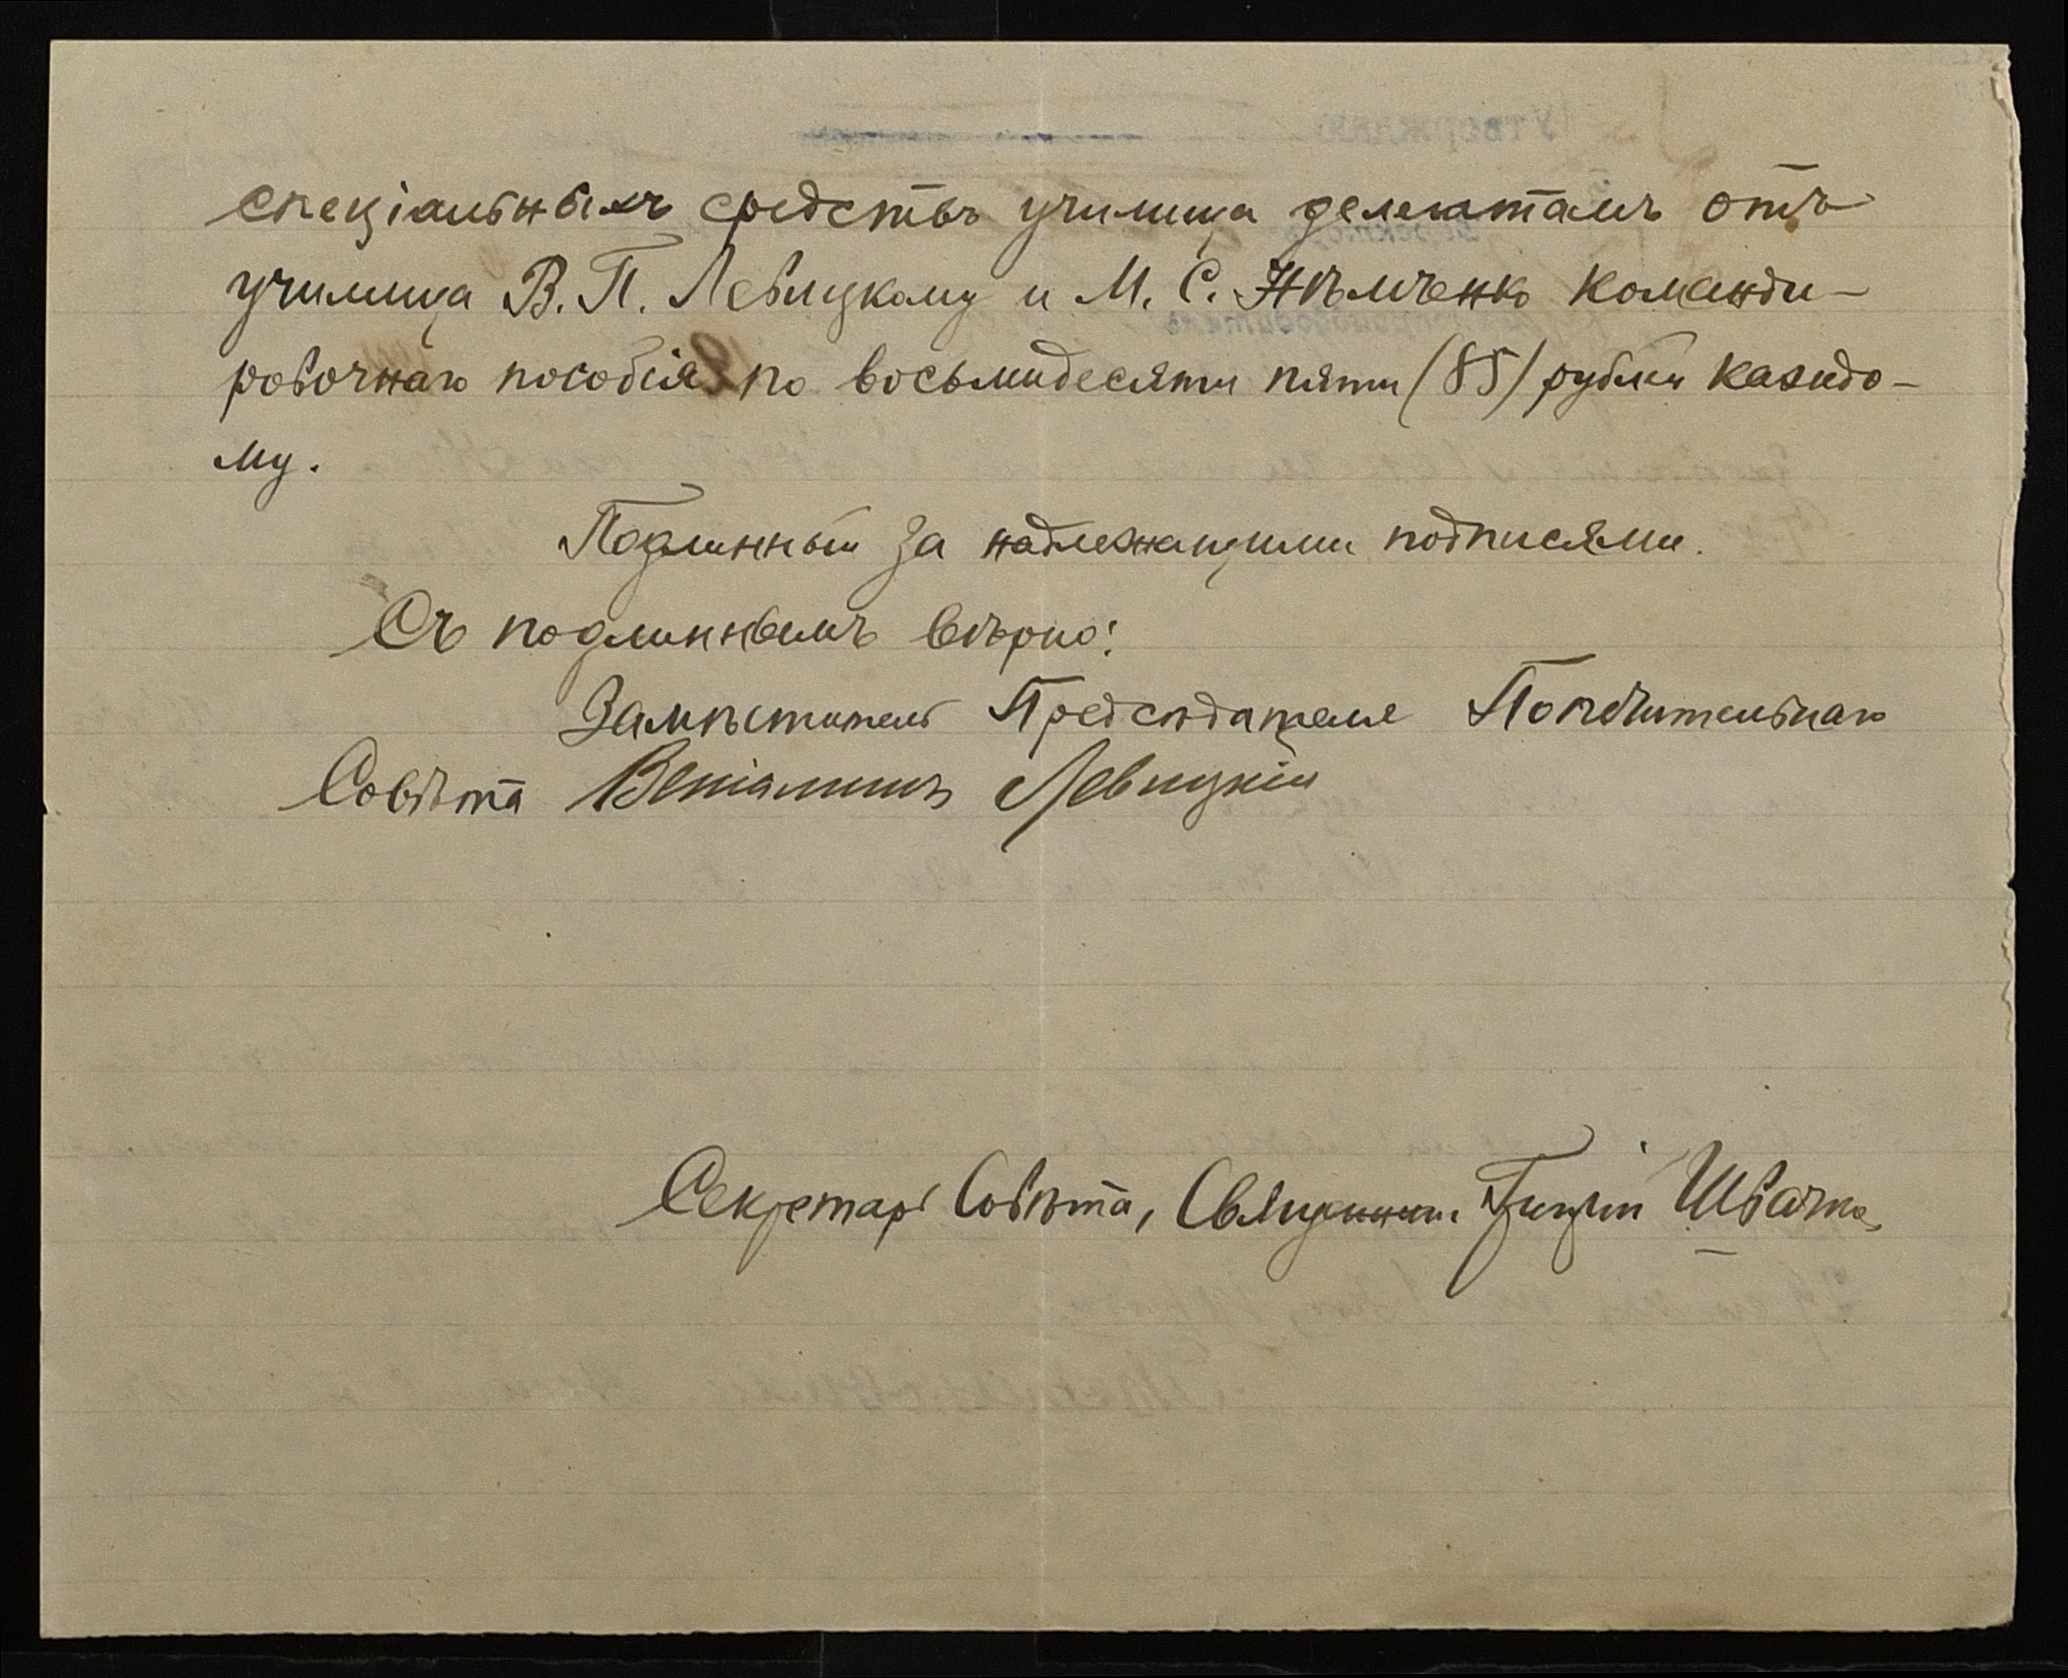 спеціальныхъ средствъ училища делегатамъ отъ
училища В. П. Левицкому и М. С. Нѣмченко команди-
ровочнаго пособія по восьмидесяти пяти (85) рублей каждо-
му.
Подлинный за надлежащими подписями.
Съ подлиннымъ вѣрно:
Замѣститель Предсѣдателя Попечительнаго
Совѣта Веніаминъ Левицкій
Секретарь Совѣта, Священник